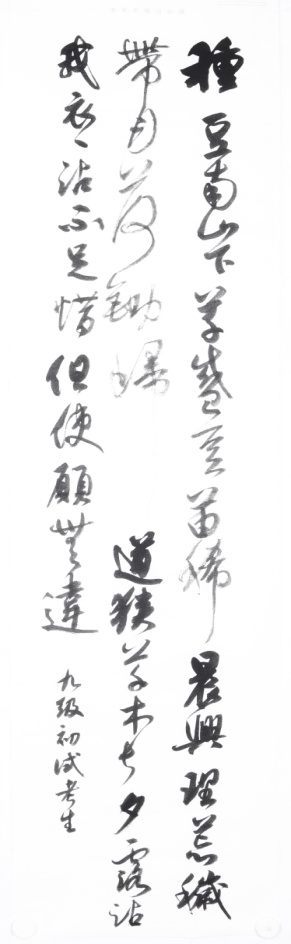 種豆南山下草盛豆苗稀晨興理荒穢
帶月荷鋤歸道狹草木長夕露沾
我衣々沾不足惜但使願無違
九級初試考生